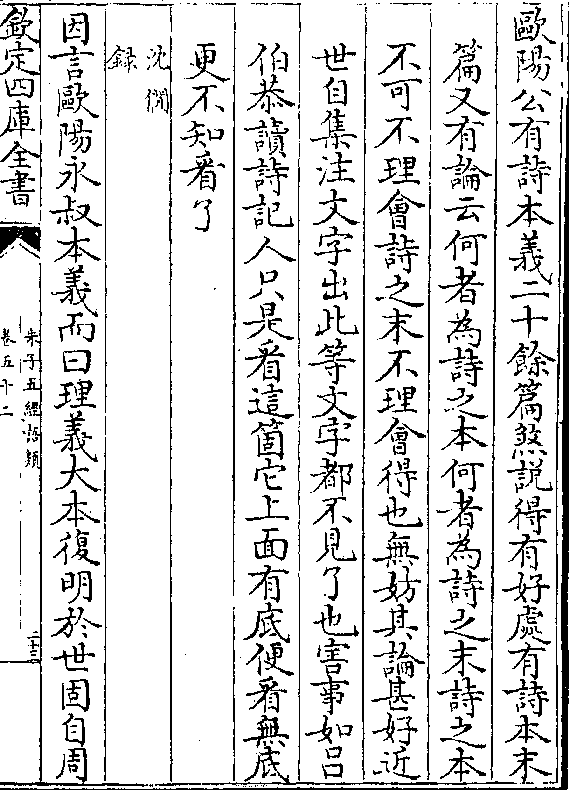 歐陽公有詩本義二十餘篇煞説得有好處有詩本末
篇又有論云何者為詩之本何者為詩之末詩之本
不可不理會詩之末不理會得也無妨其論甚好近
世自集注文字出此等文字都不見了也害事如吕
伯恭讀詩記人只是看這箇它上面有底便看無底
更不知看了
沈僩
録
因言歐陽永叔本義而曰理義大本復明於世固自周
欽定四庫全書
朱子五經語類
卷五十二
二十三